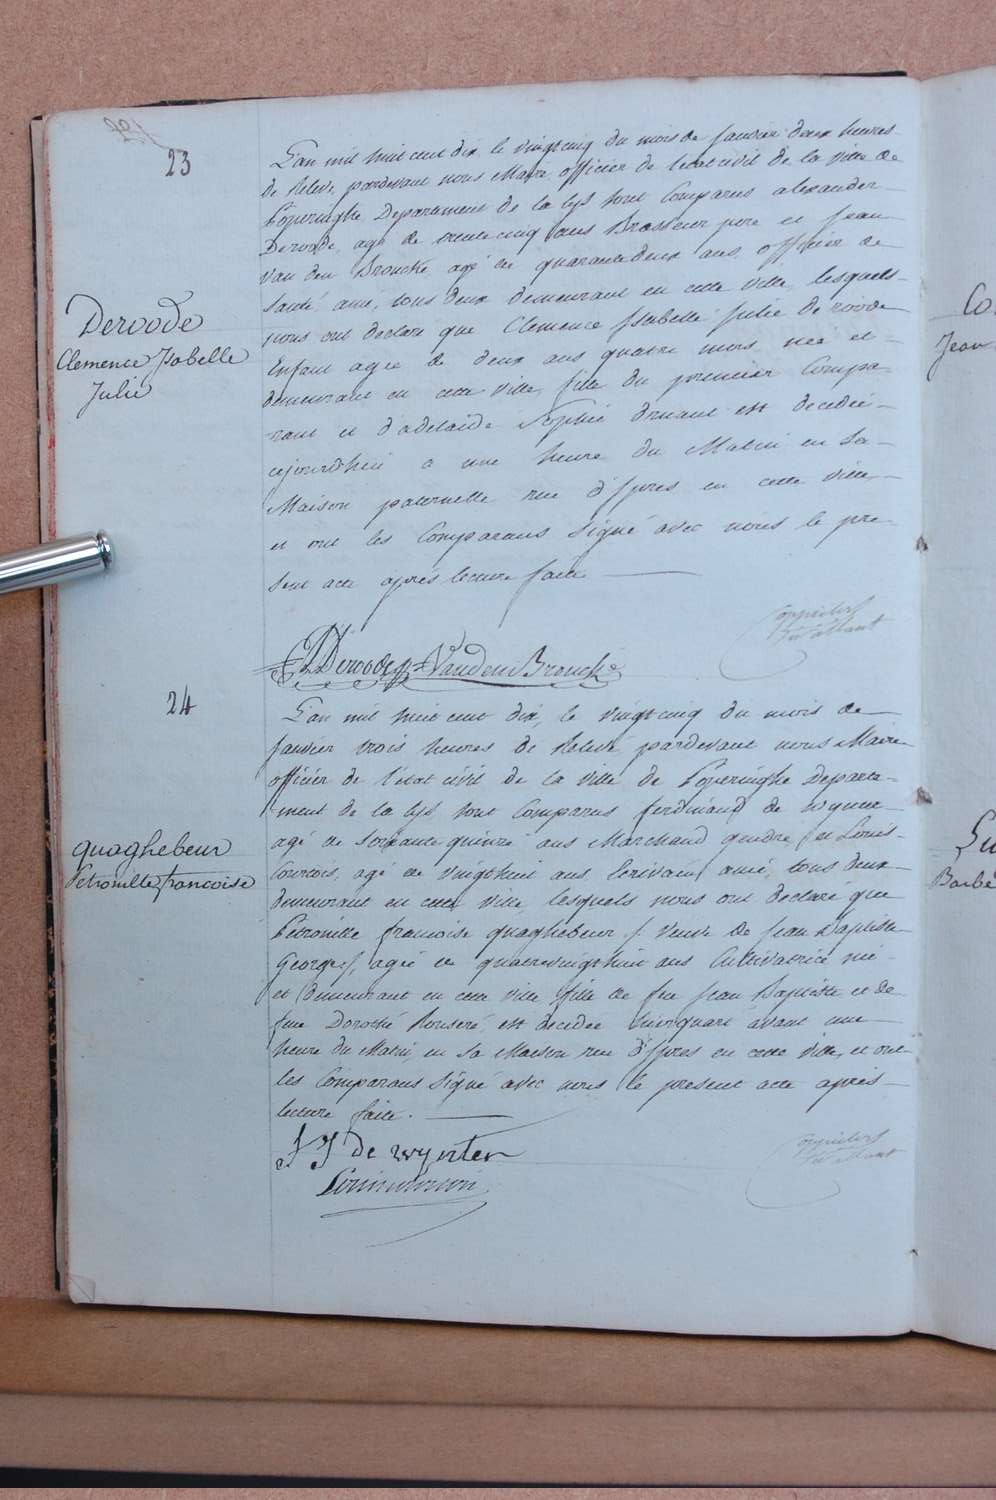 23
L'an mil huit cent dix, le vingtcinq du mois de Janvier deux heures
de Relevé, pardevant nous Maire officier de l'etat civil de la ville de
Poperinghe Departement de la Lys sont Comparus alexander
Deroode, agé de trente cinq ans Brasseur pere et Jean
Van den Broucke, agé de quarantedeux ans, officier de
santé ami, tous deux demeurant en cette ville, lesquels
nous ont declaré que Clemence Isabelle Julie de roode
Enfant agée de deux ans quatre mois née et
demeurant en cette ville, fille du premier Compa-
rant et d'adelaide Sophie druant est decedée
cejourd'hui a une heure du Matin en sa
Maison paternelle rue d'Ypres en cette ville,
et ont les Comparans signé avec nous le pre-
sent acte après lecture faite
Deroode
Clemence Isabelle
Julie
Deroode Vanden Broucke
24
L'an mil huit cent dix, le vingtcinq du mois de
Janvier trois heures de Relevé, pardevant nous Maire
officier de l'état civil de la ville de Poperinghe Departe-
ment de la Lys, sont Comparus ferdinand de wynter
agé de soixante quinze ans Marchand gendre, et Louis
Courtois, agé de vingthuit ans Ecrivain ami, tous deux
demeurant en cette ville, lesquels nous ont declaré que
Pétronille francoise quaghebeur, veuve de Jean Baptiste
Georges, agée de quatrevingthuit ans Cultivatrice née
et demeurant en cette ville fille de feu Jean Baptiste et de
feue Dorothé est decedée hier quart avant une
heure du Matin en sa Maison rue d'Ypres en cette ville, et ont
les Comparans signé avec nous le present acte après
lecture faite.
quaghebeur
Petronille francoise
F J de wynter
Co
Jean
Barbe